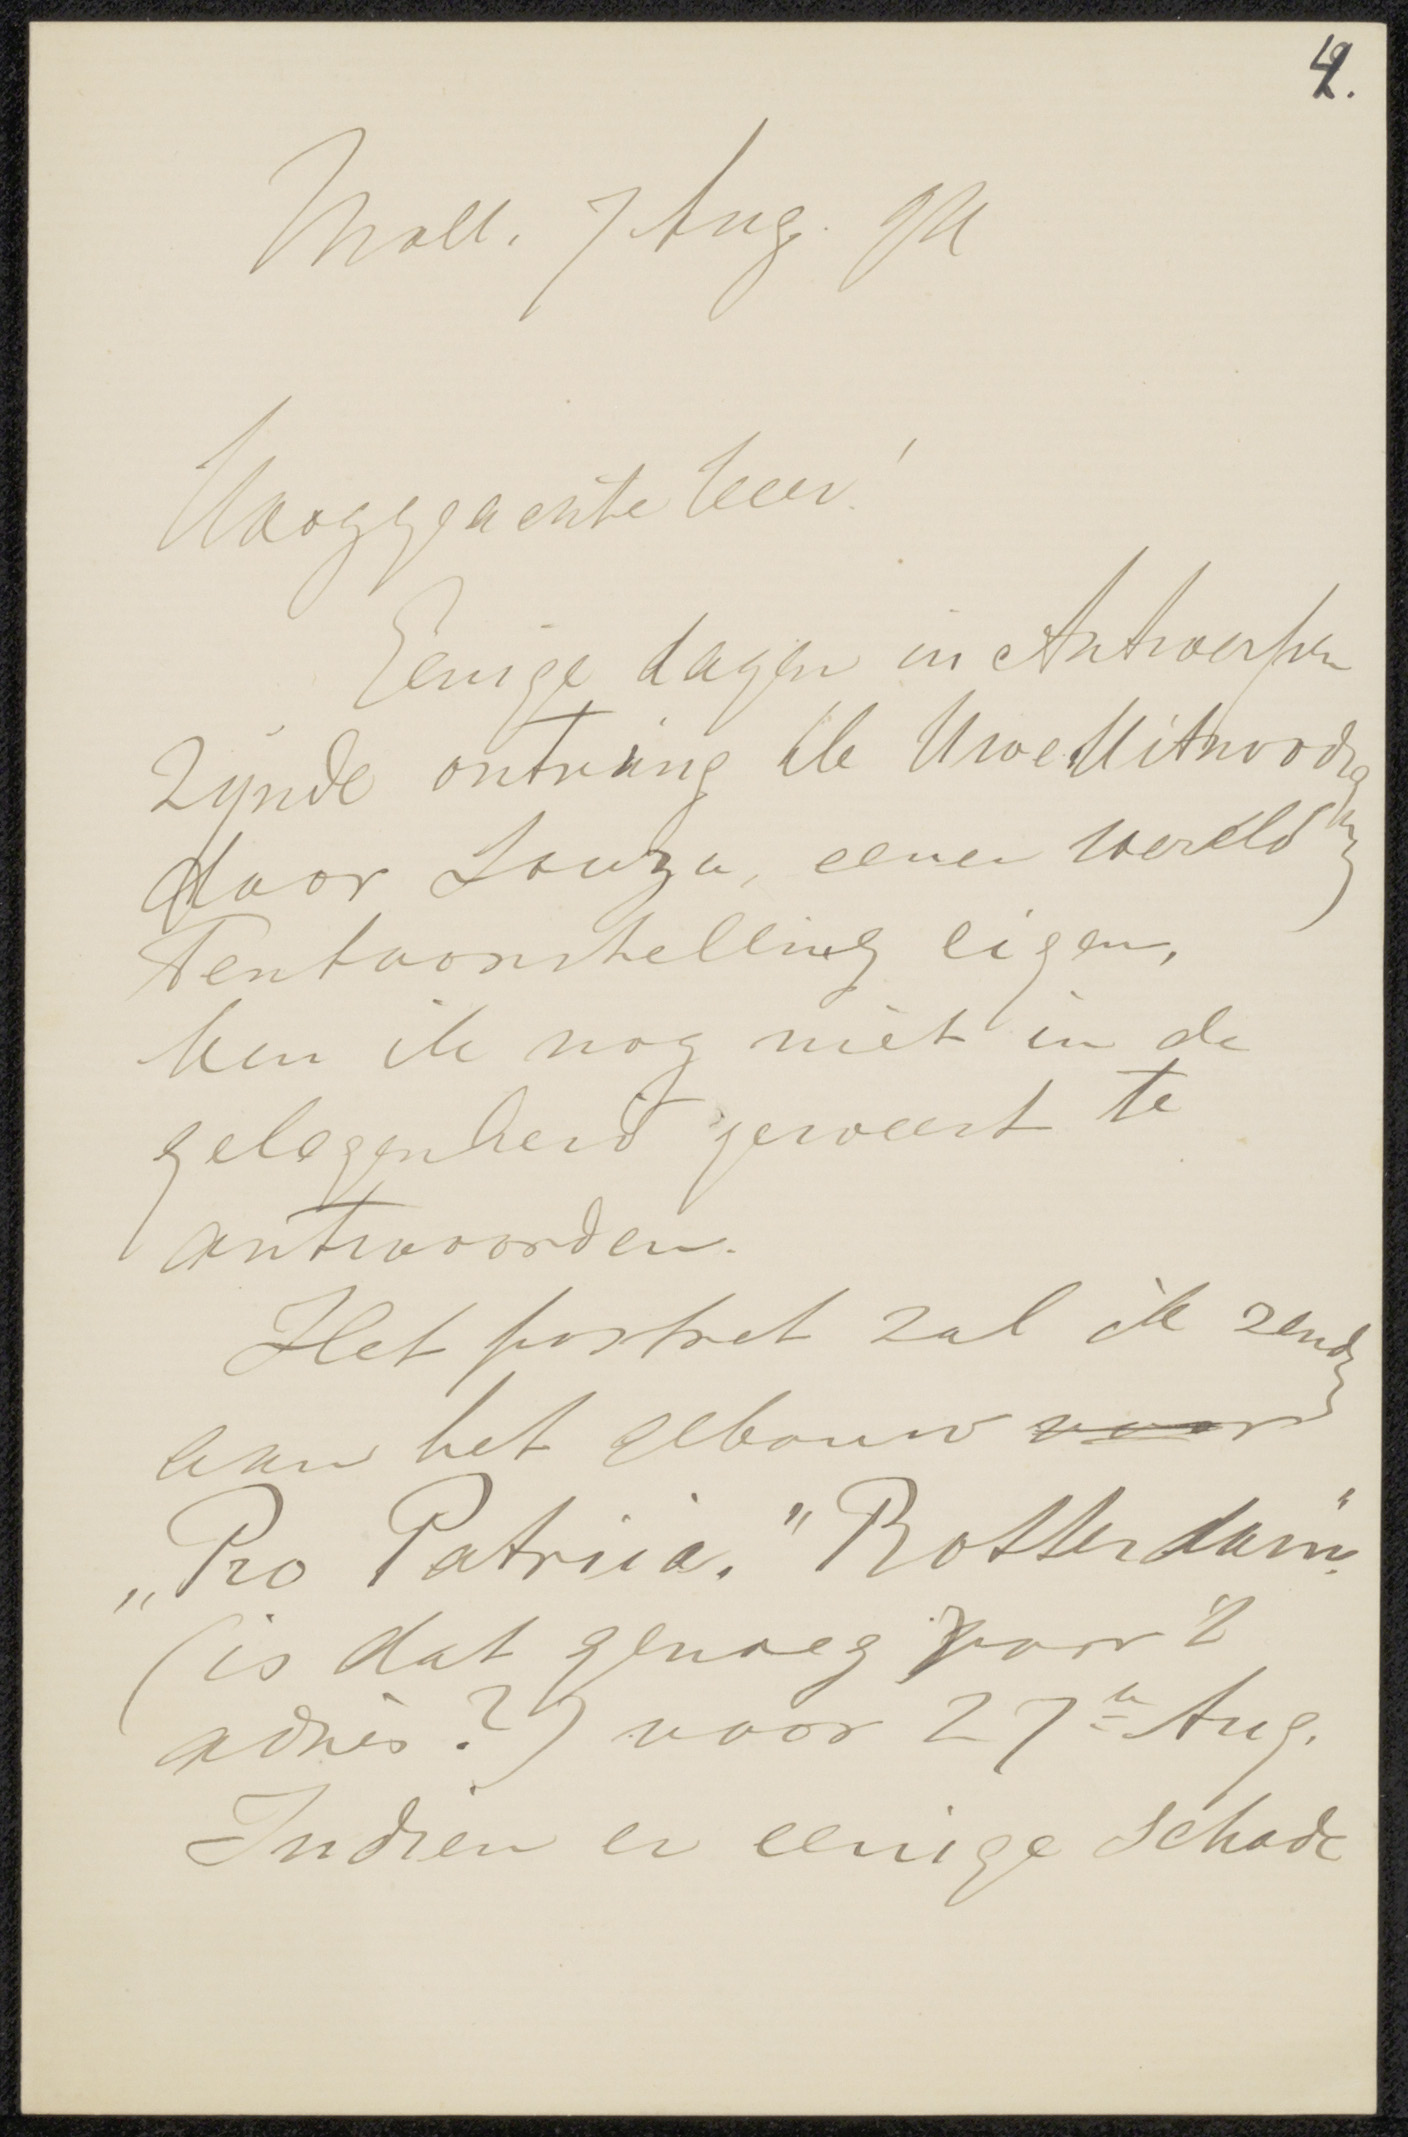 4.
Moll. 7 Aug. 94
Hooggeachte heer!
Eenige dagen in Antwerpen
zijnde ontving ik Uwe Uitnoodiging
door
eener wereld
Tentoonstelling eigen,
ben ik nog niet in de
gelegenheid geweest te
antwoorden.
Het portret zal ik zenden
aan het gebouw voor
„Pro Patria." Rotterdam".
(is dat genoeg voor 't
adres?) voor 27n Aug.
Indien er eenige schade